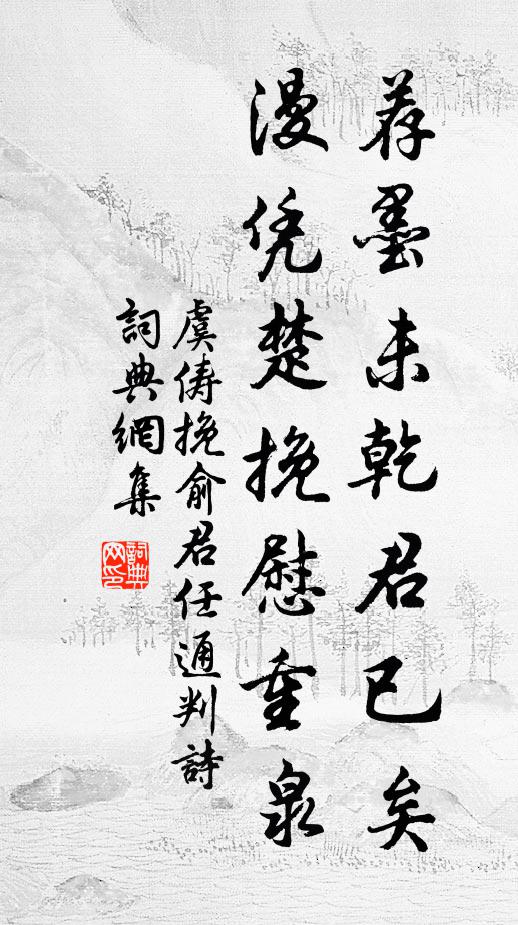 荐墨未乾君已矣
漫凭楚挽慰重泉
虞儔挽俞君任通判詩
詞典網集
詞典网印